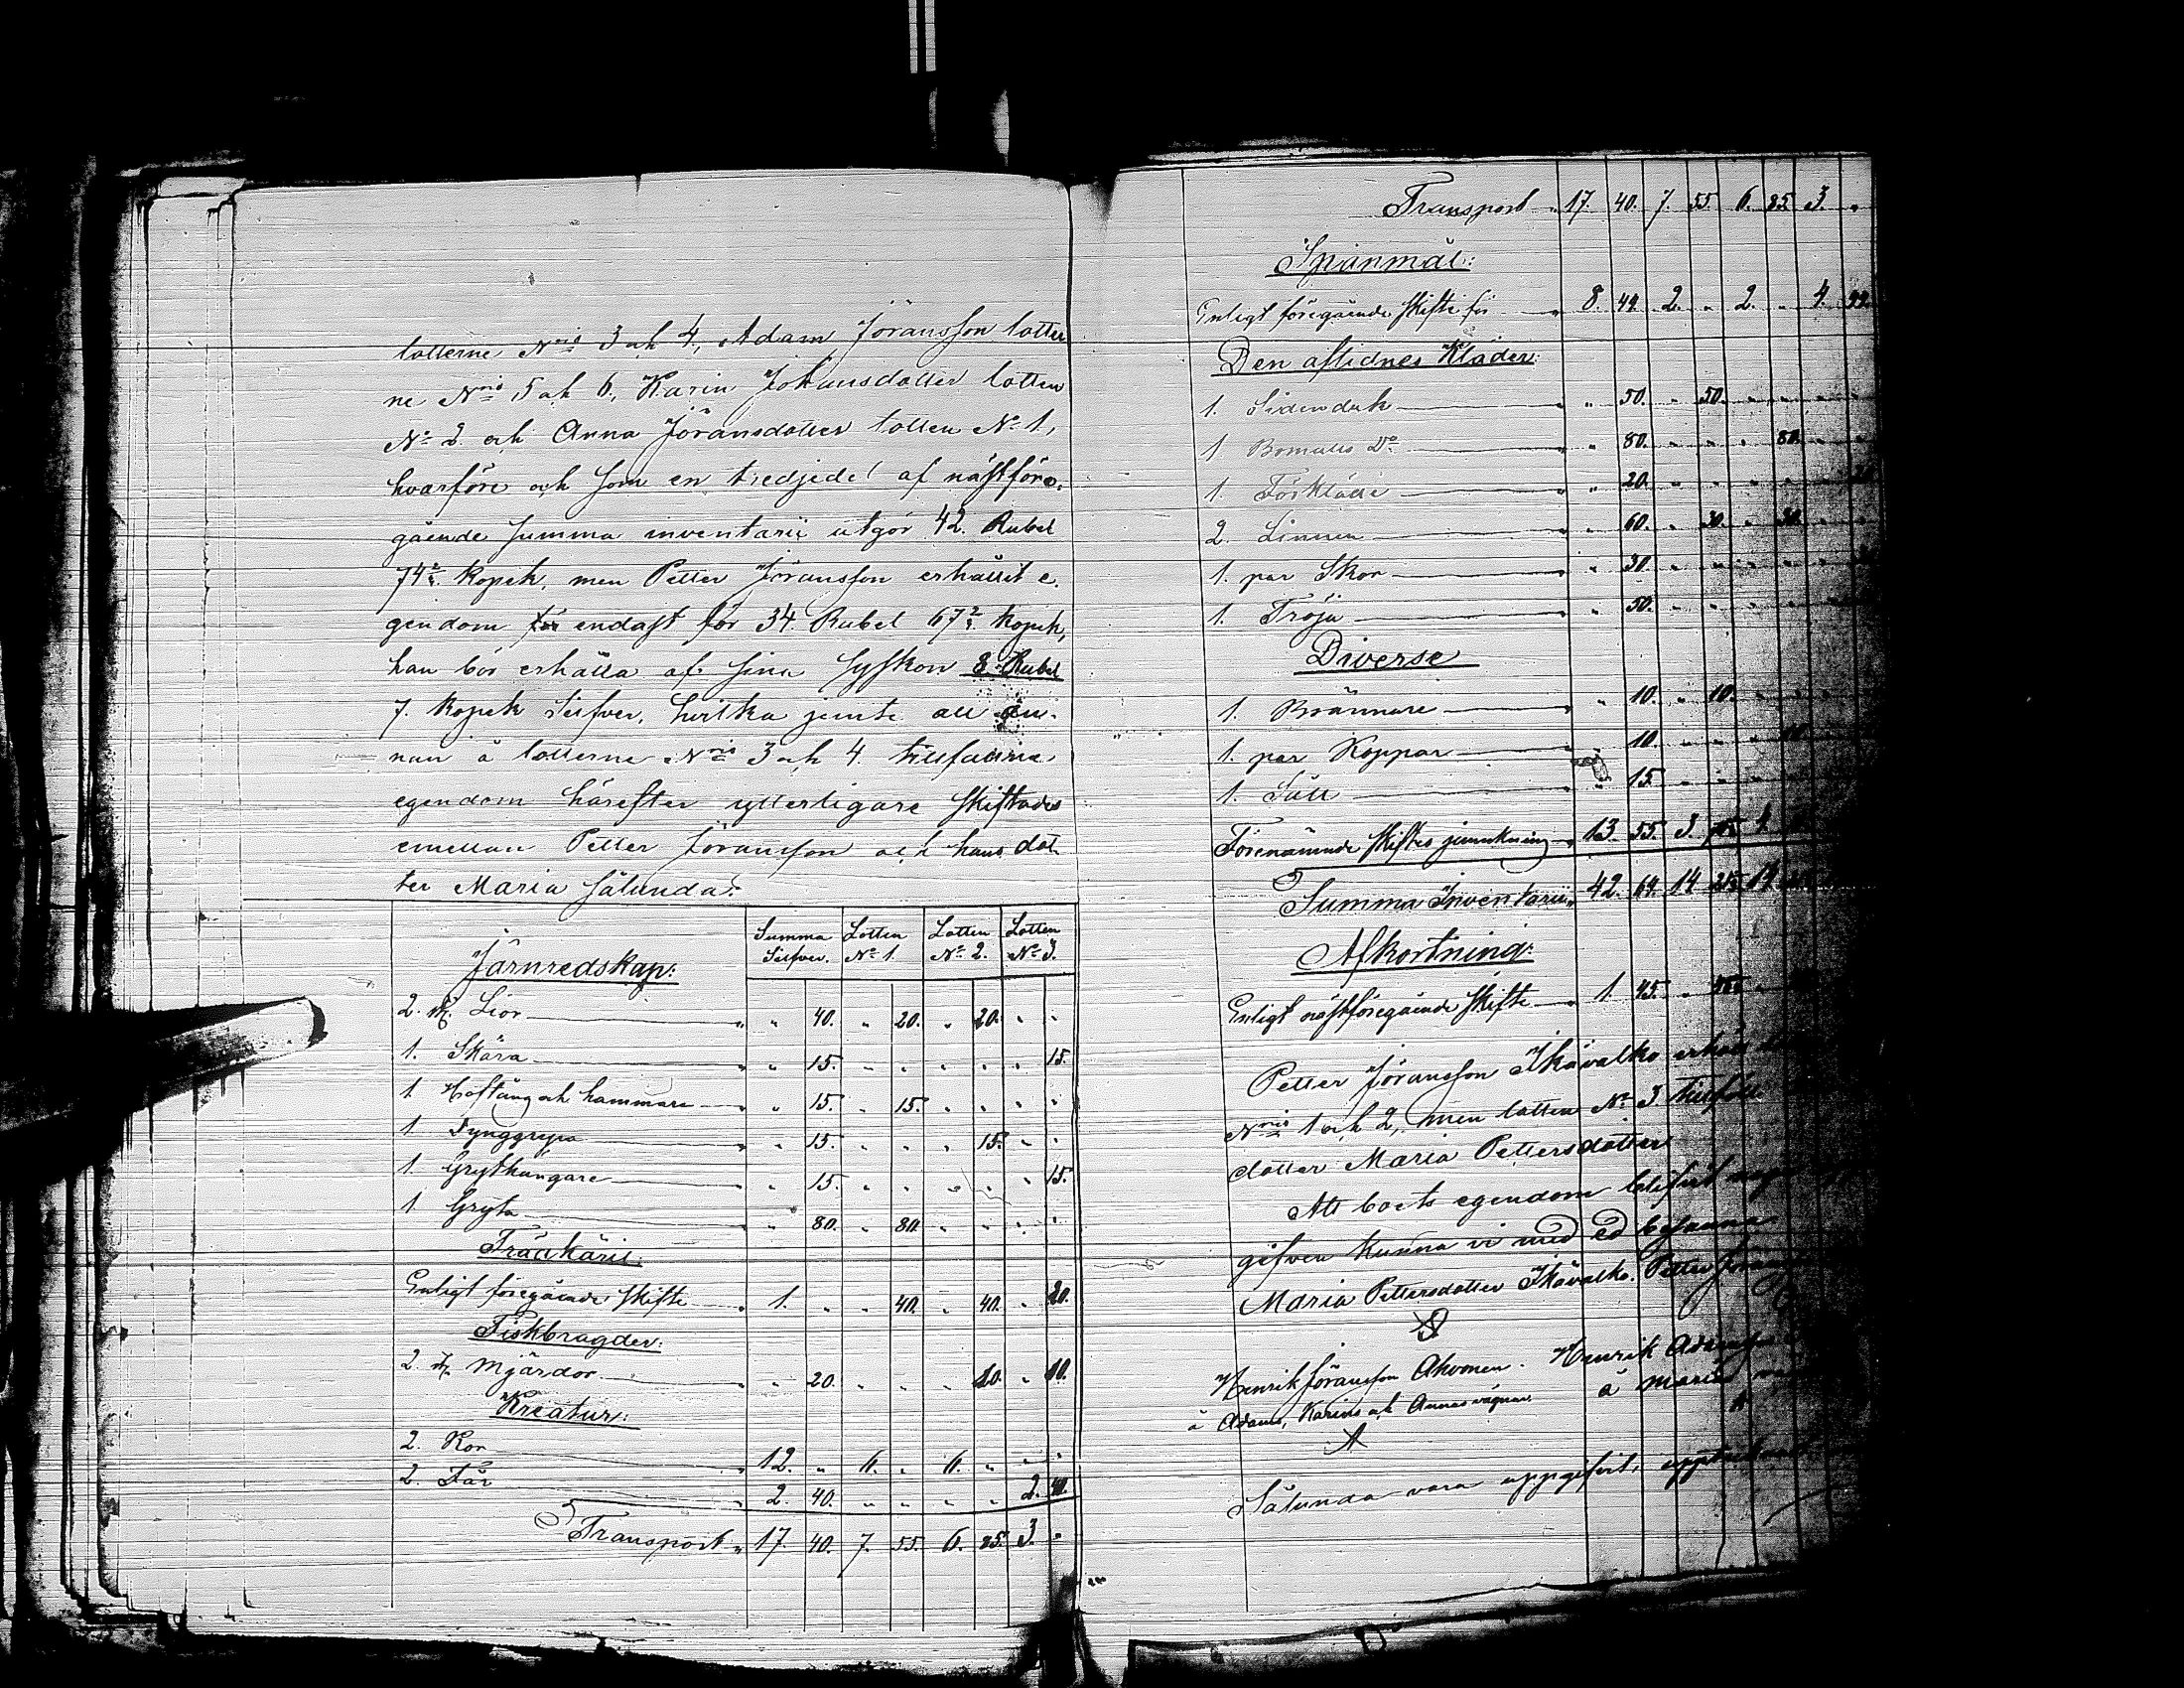 lotterne N:ris 3 och 4, Adam Jöransson lotter
ne N:ris 5 och 6, Karin Johansdotter lotten
N:o 2 och Anna Jöransdotter lotten N:o 1,
hvarföre och som en tredjedel af nästföre-
gående summa inventarii utgör 42. Rubel
74 2/3. kopek, men Petter Jöransson erhållit e.
gendom för endast för 34 Rubel 67 2/3 kopek,
han bör erhålla af sina syskon 8 Rubel
7. kopek silfver, hvilka jemte all
nan å lotterne N:ris 3 och 4. tillfallna
egendom härefter ytterligare skiftades
emellan Petter Jöransson och hans dot-
ter Maria sålunda:
Summa Silfver. Lotten N:o 1. Lotten N:o 2. Lotten N:o 3.
Järnredskap:
2. st. Lior " 40. " 20. " 20. " "
1. Skära " 15. " " " " " 15.
1 Hoftång och hammare " 15. " 15. " " " "
1 " 15. " " " 15. " "
1 Grythängare " 15. " " " " " 15.
1 Gryta " 80. " 80. " " " "
Trädkäril:
Enligt föregående skifte 1. " " 40. " 40. " 20.
Fiskbragder:
2. st. Mjärdor " 20. " " " 10. " 10.
Kreatur:
2. Kor 12. " 6. " 6. " " "
2. Får 2. 40. " " " " 2. 40.
Transport " 17. 40. 7. 55. 6. 85. 3. "
Transport " 17. 40. 7. 55. 6. 85. 3. "
Spanmål:
Enligt föregående skifte för 8. 49. 2. " 2. " 4. 49.
Den aflidnes Kläder:
1. Sidenduk " 50. " 50. " " " "
1 Bomulls D:o " 80. " " " 80. " "
1. Förkläde " 20. " " " " " 20
2. Linnen " 60. " 30. " 30. " "
1. par Skor " 30. " " " "
1. Tröja " 50. " " " "
Diverse
1. Brännare " 10. " 10. " "
1. par Koppar " 10. " " "
1. Såll " 15. " " "
Förenämnde skiftes jemnkning 13. 55. 3.
Summa Inventarii 42. 64. 14
Afkortning:
Enligt nästföregående skifte 1. 45. "
Petter Jöransson Ikävalko erhöll
N:ris 1 och 2, men lotten N:o 3 tillföll
dotter Maria Pettersdotter
Att boets egendom blifvit
gifven kunna vi med ed besanna
Maria Pettersdotter Ikävalko. Petter
Henrik Jöransson Ahvonen. Henrik
å Adams, Karins och Annas vägnar. å Marias
Sålunda vara uppgifvit,